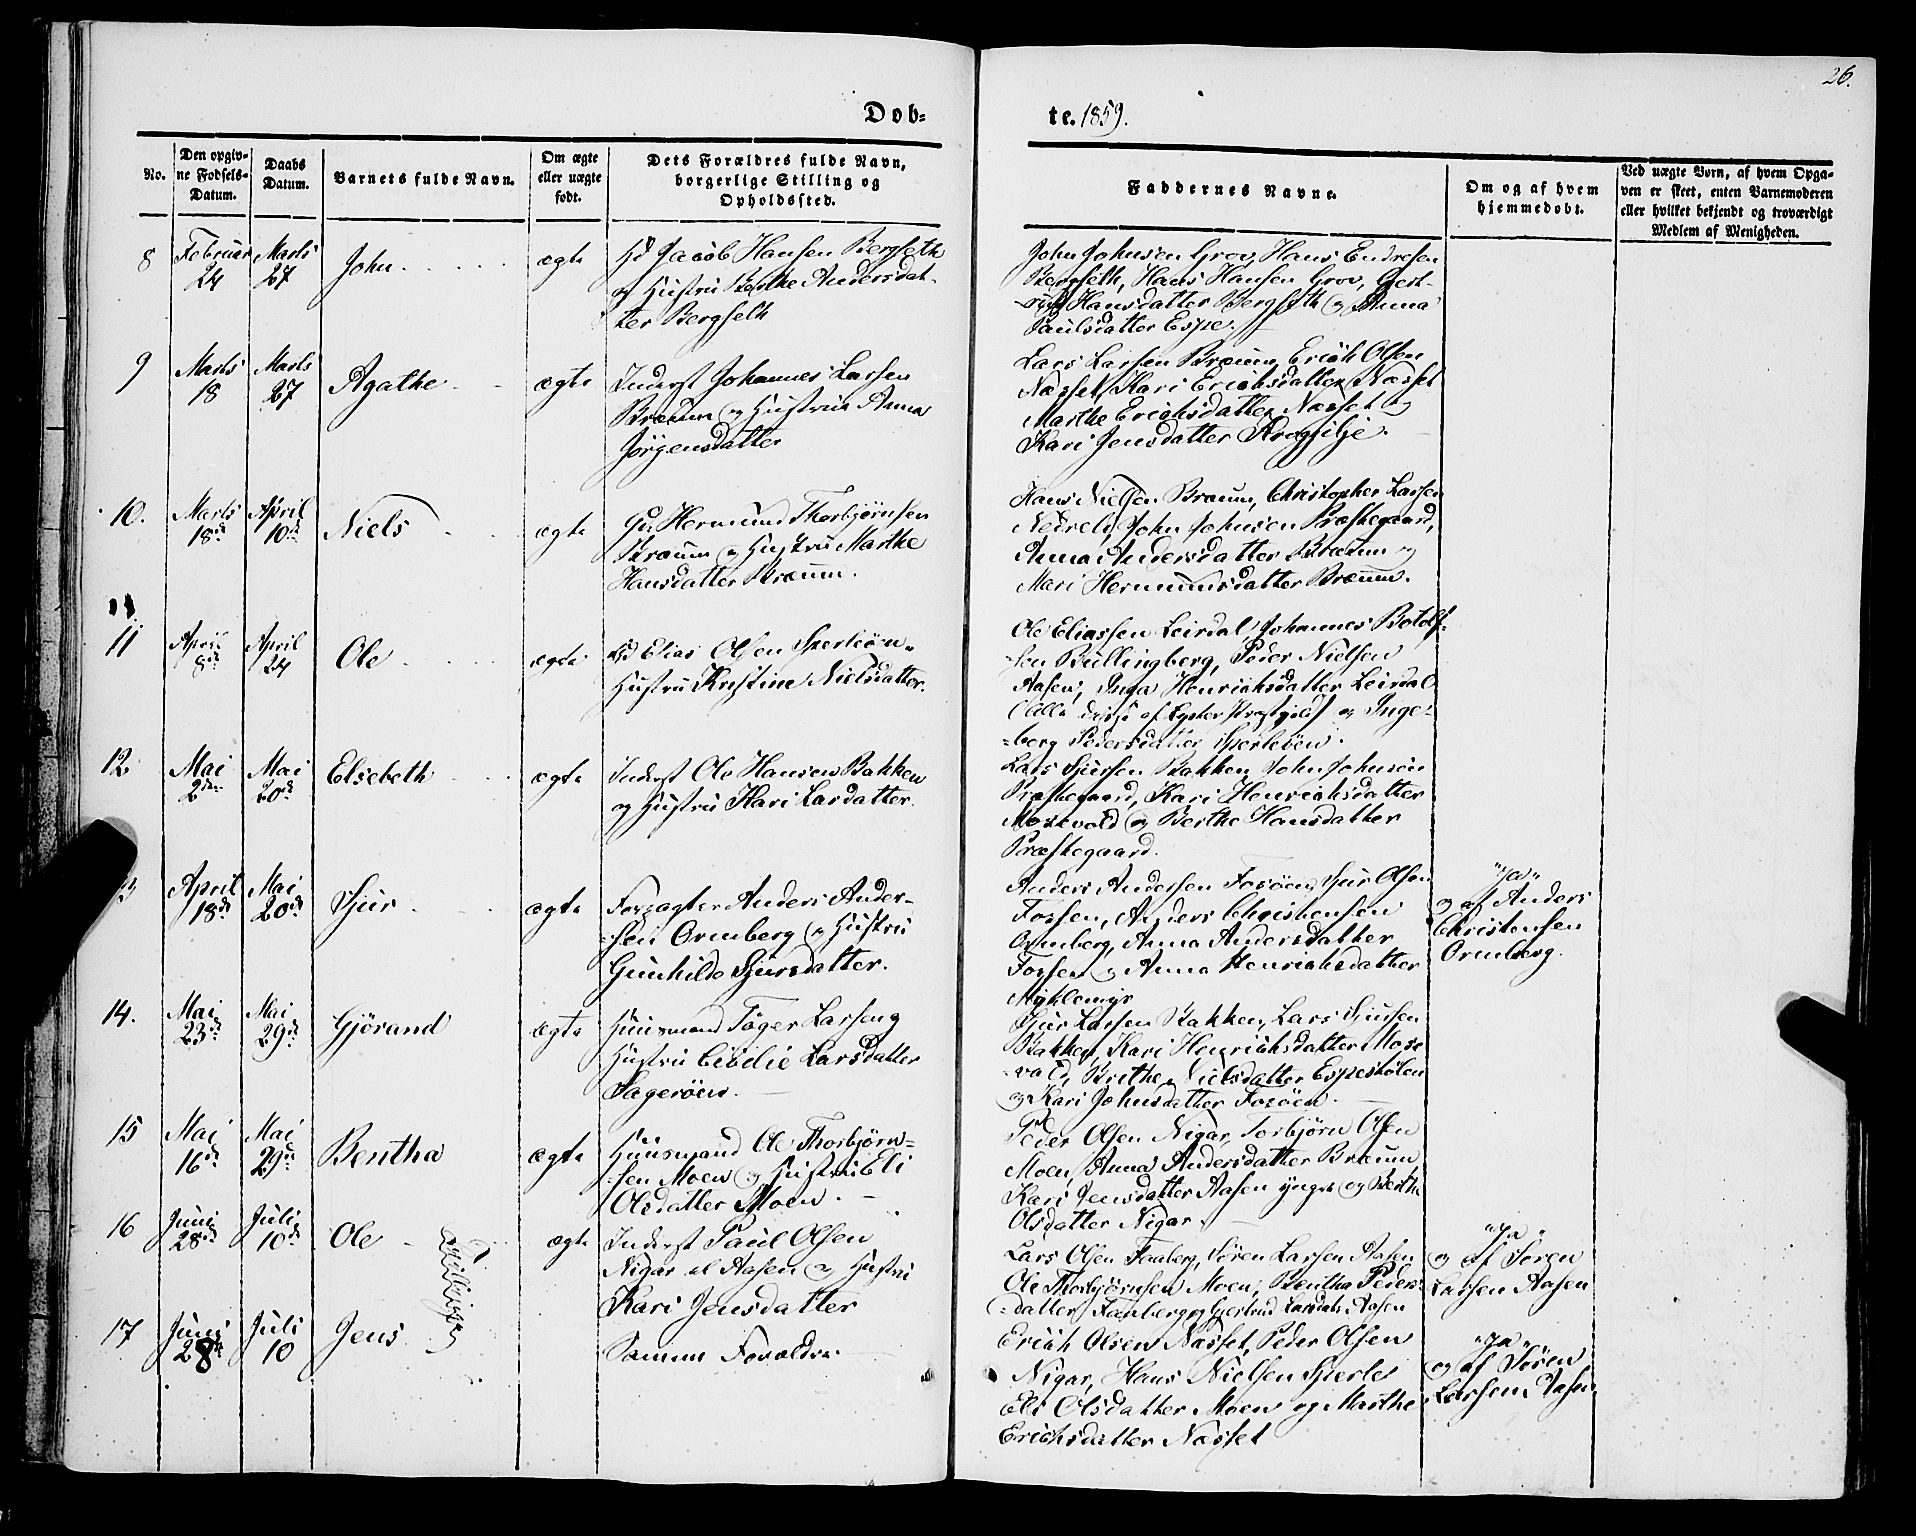 26.
Döb= te. 1859.
No.
Den opgiv-
ne Fødsels-
Datum.
Daabs
Datum.
Barnets fulde Navn.
Om ægte
eller uægte
født.
Dets Forældres fulde Navn,
borgerlige Stilling og
Opholdssted.
Faddernes Navne.
Om og af hvem
hjemmedøbt.
Ved uægte Børn, af hvem Opga-
ven er skeet, enten Barnemoderen
eller hvilket bekjendt og troværdigt
Medlem af Menigheden.
8
Februar
24
Marts
27
John
ægte
Gd Jacob Hansen Bergseth
og Hustru Berthe Andersdat-
ter Bergseth
John Johnsen Grov, Hans Endresen
Bergseth, Hans Hansen Grov, Gert-
-rud Hansdatter Bergseth og Anna
Paulsdatter Espe.
9
Marts
18
Marts
27
Agathe
ægte
Inderst Johannes Larsen
Bræum og Hustru Anna
Jørgensdatter
Lars Larsen Bræum, Erich Olsen
Næsset, Kari Erichsdatter Næsset
Marthe Erichsdatter Næsset og
Kari Jensdatter Krogfilje.
10.
Marts
18de
April
10de
Niels
ægte
Hermund Thorbjørnsen
Bræum og Hustru Marthe
Hansdatter Bræum.
Hans Nielsen Bræum, Christopher Larsen
Nedrelid, John Johnsen Præstegaard,
Anna Andersdatter Bræum og
Mari Hermundsdatter Bræum.
11
April
8de
April
24
Ole
ægte
Elias Olsen Sperleöen
Hustru Kristine Nielsdatter.
Ole Eliassen Leirdal, Johannes Botolf-
-sen Bullingberg, Peder Nielsen
Aasen, Inga Henrichsdatter Leirdal
(Alle disse af Lyster Præstegjeld) og Inge-
-berg Pedersdatter Sperleöen.
12
Mai
2den
Mai
20de
Elsebeth
ægte
Inderst Ole Hansen Bakken
og Hustru Kari Larsdatter.
Lars Sjursen Bakken, John Johnsen
Præstegaard, Kari Henrichsdatter
Mosevold og Berthe Hansdatter
Præstegaard.
13
April
18de
Mai
20de
Sjur
ægte
Forpagter Anders Ander-
-sen Ormberg og Hustru
Gunhilde Sjursdatter.
Anders Andersen Fosöen, Sjur Olsen
Fossen, Anders Christensen
Ormberg, Anna Andersdatter
Fossen og Anna Henrichsdatter
Myklemyr
"Ja"
og af Anders
Christensen
Ormberg.
14.
Mai
23de
Mai
29de
Gjörand
ægte
Huusmand Töger Larsen og
Hustru Cecilie Larsdatter
Hageröen.
Sjur Larsen Bakken, Lars Sjursen
Bakken, Kari Henrichsdatter Mose-
-vold, Brithe Nielsdatter Espestölen
og Kari Johnsdatter Fosöen.
15
Mai
16de
Mai
29de
Bentha
ægte
Huusmand Ole Thorbjørn-
-sen Moen og Hustru Eli
Olsdatter Moen.
Peder Olsen Nigar, Torbjörn Olsen
Moen, Anna Andersdatter Bræum
Kari Jensdatter Aasen yngre og Berthe
Olsdatter Nigar.
16
Juni
28de
Juli
10de
Ole
Tvillinger
ægte
Inderst Paul Olsen
Nigar el Aasen og Hustru
Kari Jensdatter
Lars Olsen Faaberg, Sören Larsen Aasen
Ole Thorbjörnsen Moen, Bentha Peders-
-datter Faaberg og Gjertrud Larsdatr Aasen
"Ja"
og af Sören
Larsen Aasen
17
Juni
28de
Juli
10
Jens
Samme Forældre.
Erich Olsen Næsset, Peder Olsen
Nigar, Hans Nielsen Sperle
Eli Olsdatter Moen og Marthe
Erichsdatter Næsset
"Ja"
og af Sören
Larsen Aasen